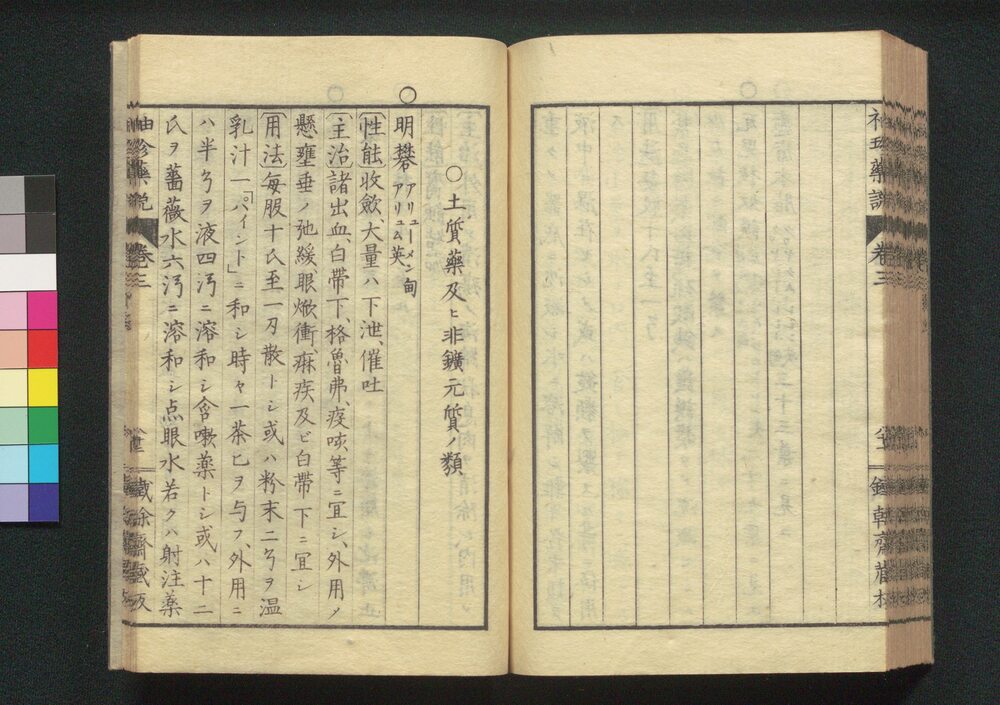 袖珍藥説 巻三
○土質藥及ヒ非鑛元質ノ類
○明礬 アリューメン甸 アリュム英
〔性能〕收斂、大量ハ下泄、催吐
〔主治〕諸出血、白帶下、格魯弗、疫咳等ニ宜シ、外用ノ
懸壅垂ノ弛緩、眼焮衝、痳疾及ビ白帶下ニ宜シ
〔用法〕每服十氏至一刄散トシ或ハ粉末二弓ヲ温
乳汁一「パイント」ニ和シ時々一茶匕ヲ与フ、外用ニ
ハ半弓ヲ液四㕮ニ溶和シ含嗽藥トシ或ハ十二
氏ヲ薔薇水六㕮ニ溶和シ点眼水若クハ射注藥
袖珍藥説 巻三